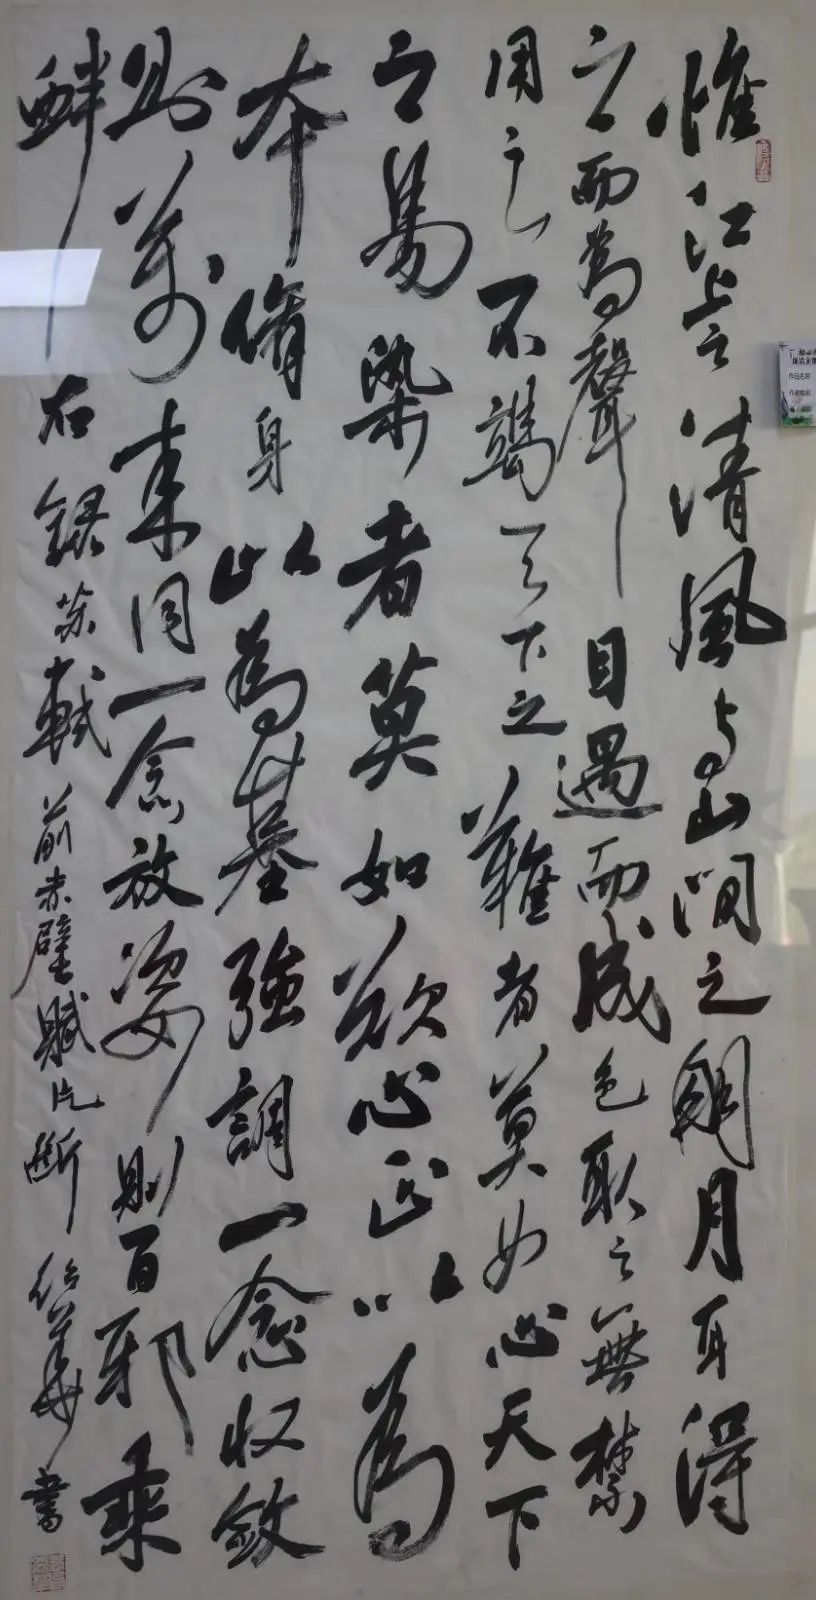 惟江上之清風与山間之明月耳得
之而為聲目遇而成色取之無禁
用之不竭天下之難者莫如心天下
之易染者莫如欲心正以為
本脩身以為基強調一念收斂
則萬来同一念放姿則百邪乘
衅
右錄苏軾前赤壁賦片断 华書
作品名称
作者姓名